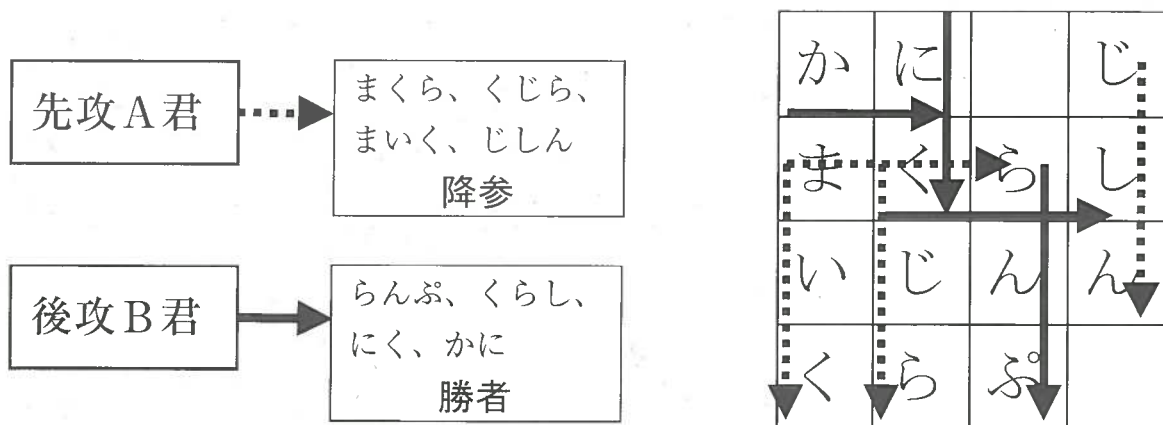 先攻A君
まくら、くじら、
まいく、じしん
降参
後攻B君
らんぷ、くらし、
にく、かに
勝者
か に じ
ま く ら し
い じ ん ん
く ら ぷ